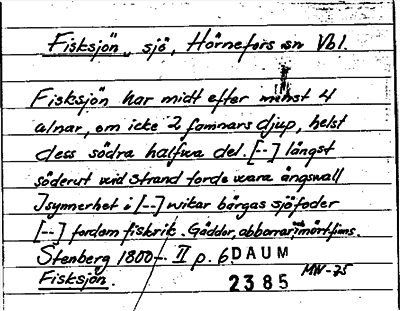 Fisksjön, sjö, Hörnefors sn Vbl.
Fisksjön har midt efter minst 4
alnar, om icke 2 famnars djup, helst
dess södra halfva del. [--] långst
söderut wid strand torde wara ångswall
Isynnerhet i [--] wikar bärgas sjöfoder
[--] fordom fiskrik. Gäddor, abborrar, mört fins.
Stenberg 1800-. II p. 6
DAUM
Fisksjön.
2385
MW-75